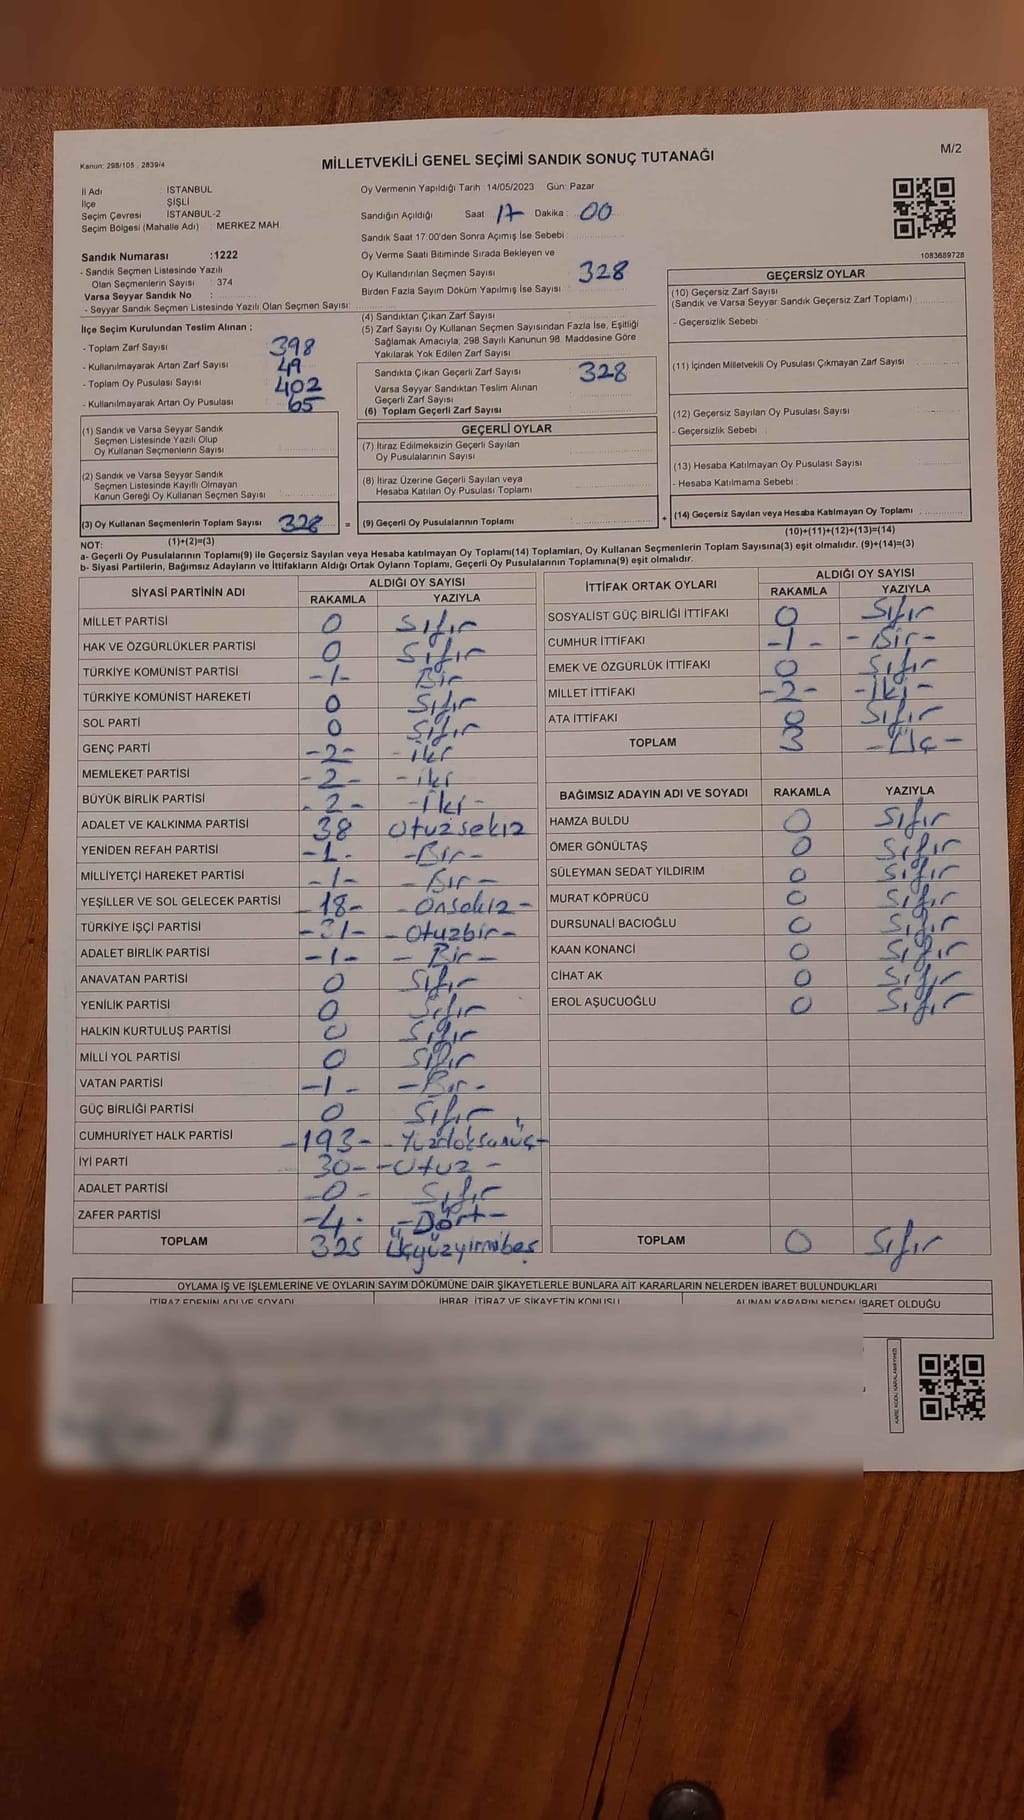 Kanun: 298/105 , 2839/4
MİLLETVEKİLİ GENEL SEÇİMİ SANDIK SONUÇ TUTANAĞI
M/2
İl Adı : İSTANBUL
İlçe : ŞİŞLİ
Seçim Çevresi : İSTANBUL-2
Seçim Bölgesi (Mahalle Adı) : MERKEZ MAH
Sandık Numarası :1222
- Sandık Seçmen Listesinde Yazılı
Olan Seçmenlerin Sayısı : 374
Varsa Seyyar Sandık No :
- Seyyar Sandık Seçmen Listesinde Yazılı Olan Seçmen Sayısı:
Oy Vermenin Yapıldığı Tarih : 14/05/2023 Gün: Pazar
Sandığın Açıldığı Saat 17 Dakika : 00
Sandık Saat 17:00'den Sonra Açımış İse Sebebi :
Oy Verme Saati Bitiminde Sırada Bekleyen ve
Oy Kullandırılan Seçmen Sayısı 328
Birden Fazla Sayım Döküm Yapılmış İse Sayısı :
1083689728
İlçe Seçim Kurulundan Teslim Alınan ;
- Toplam Zarf Sayısı 398
- Kullanılmayarak Artan Zarf Sayısı 49
- Toplam Oy Pusulası Sayısı 402
- Kullanılmayarak Artan Oy Pusulası 65
(1) Sandık ve Varsa Seyyar Sandık
Seçmen Listesinde Yazılı Olup
Oy Kullanan Seçmenlerin Sayısı
(2) Sandık ve Varsa Seyyar Sandık
Seçmen Listesinde Kayıtlı Olmayan
Kanun Gereği Oy Kullanan Seçmen Sayısı
(3) Oy Kullanan Seçmenlerin Toplam Sayısı 328
(1)+(2)=(3)
(4) Sandıktan Çıkan Zarf Sayısı
(5) Zarf Sayısı Oy Kullanan Seçmen Sayısından Fazla İse, Eşitliği
Sağlamak Amacıyla; 298 Sayılı Kanunun 98. Maddesine Göre
Yakılarak Yok Edilen Zarf Sayısı
Sandıkta Çıkan Geçerli Zarf Sayısı 328
Varsa Seyyar Sandıktan Teslim Alınan
Geçerli Zarf Sayısı
(6) Toplam Geçerli Zarf Sayısı
GEÇERLİ OYLAR
(7) İtiraz Edilmeksizin Geçerli Sayılan
Oy Pusulalarının Sayısı
(8) İtiraz Üzerine Geçerli Sayılan veya
Hesaba Katılan Oy Pusulası Toplamı
= (9) Geçerli Oy Pusulalarının Toplamı
GEÇERSİZ OYLAR
(10) Geçersiz Zarf Sayısı
(Sandık ve Varsa Seyyar Sandık Geçersiz Zarf Toplamı)
- Geçersizlik Sebebi
(11) İçinden Milletvekili Oy Pusulası Çıkmayan Zarf Sayısı
(12) Geçersiz Sayılan Oy Pusulası Sayısı
- Geçersizlik Sebebi
(13) Hesaba Katılmayan Oy Pusulası Sayısı
- Hesaba Katılmama Sebebi
+ (14) Geçersiz Sayılan veya Hesaba Katılmayan Oy Toplamı
(10)+(11)+(12)+(13)=(14)
NOT:
a- Geçerli Oy Pusulalarının Toplamı(9) ile Geçersiz Sayılan veya Hesaba katılmayan Oy Toplamı(14) Toplamları, Oy Kullanan Seçmenlerin Toplam Sayısına(3) eşit olmalıdır. (9)+(14)=(3)
b- Siyasi Partilerin, Bağımsız Adayların ve İttifakların Aldığı Ortak Oyların Toplamı, Geçerli Oy Pusulalarının Toplamına(9) eşit olmalıdır.
SİYASİ PARTİNİN ADI ALDIĞI OY SAYISI
RAKAMLA YAZIYLA
MİLLET PARTİSİ 0 Sıfır
HAK VE ÖZGÜRLÜKLER PARTİSİ 0 Sıfır
TÜRKİYE KOMÜNİST PARTİSİ -1- Bir
TÜRKİYE KOMÜNİST HAREKETİ 0 Sıfır
SOL PARTİ 0 Sıfır
GENÇ PARTİ -2- -iki
MEMLEKET PARTİSİ -2- -iki
BÜYÜK BİRLİK PARTİSİ -2- -İki-
ADALET VE KALKINMA PARTİSİ 38 Otuzsekiz
YENİDEN REFAH PARTİSİ -1- -Bir-
MİLLİYETÇİ HAREKET PARTİSİ -1- -Bir-
YEŞİLLER VE SOL GELECEK PARTİSİ -18- -Onsekiz-
TÜRKİYE İŞÇİ PARTİSİ -31- -Otuzbir-
ADALET BİRLİK PARTİSİ -1- -Bir-
ANAVATAN PARTİSİ 0 Sıfır
YENİLİK PARTİSİ 0 Sıfır
HALKIN KURTULUŞ PARTİSİ 0 Sıfır
MİLLİ YOL PARTİSİ 0 Sıfır
VATAN PARTİSİ -1- -Bir-
GÜÇ BİRLİĞİ PARTİSİ 0 Sıfır
CUMHURİYET HALK PARTİSİ -193- -Yüzdoksanüç-
İYİ PARTİ 30- -Otuz-
ADALET PARTİSİ -0- Sıfır
ZAFER PARTİSİ -4- -Dört-
TOPLAM 325 Üçyüzyirmibeş
İTTİFAK ORTAK OYLARI ALDIĞI OY SAYISI
RAKAMLA YAZIYLA
SOSYALİST GÜÇ BİRLİĞİ İTTİFAKI 0 Sıfır
CUMHUR İTTİFAKI -1- -Bir-
EMEK VE ÖZGÜRLÜK İTTİFAKI 0 Sıfır
MİLLET İTTİFAKI -2- -İki-
ATA İTTİFAKI 0 Sıfır
TOPLAM 3 -Üç-
BAĞIMSIZ ADAYIN ADI VE SOYADI RAKAMLA YAZIYLA
HAMZA BULDU 0 Sıfır
ÖMER GÖNÜLTAŞ 0 Sıfır
SÜLEYMAN SEDAT YILDIRIM 0 Sıfır
MURAT KÖPRÜCÜ 0 Sıfır
DURSUNALİ BACIOĞLU 0 Sıfır
KAAN KONANCİ 0 Sıfır
CİHAT AK 0 Sıfır
EROL AŞUCUOĞLU 0 Sıfır
TOPLAM 0 Sıfır
OYLAMA İŞ VE İŞLEMLERİNE VE OYLARIN SAYIM DÖKÜMÜNE DAİR ŞİKAYETLERLE BUNLARA AİT KARARLARIN NELERDEN İBARET BULUNDUKLARI
İTİRAZ EDENİN ADI VE SOYADI İHBAR, İTİRAZ VE ŞİKAYETİN KONUSU ALINAN KARARIN NEDEN İBARET OLDUĞU